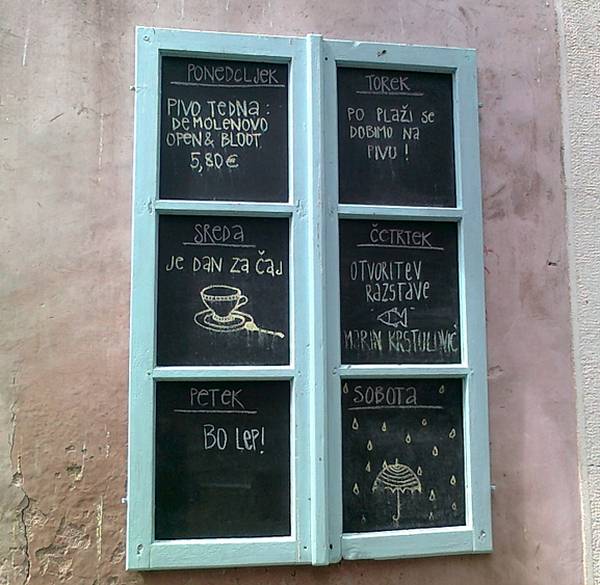 PONEDELJEK
PIVO TEDNA:
DE MOLENOVO
OPEN & BLOOT
5,80€
TOREK
PO PLAŽI SE
DOBIMO NA
PIVU!
SREDA
JE DAN ZA ČAJ
ČETRTEK
OTVORITEV
RAZSTAVE
MARIN KRSTULOVIČ
PETEK
BO LEP!
SOBOTA